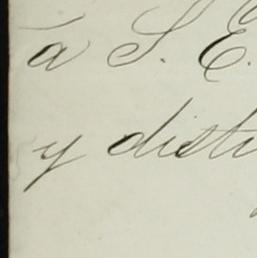 á S. E.
y disti